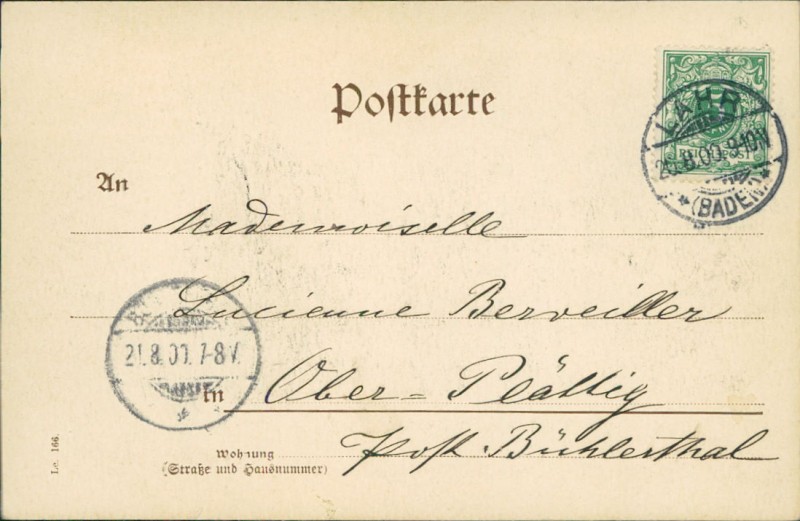 Postkarte
LAHR
20.8.00.9-10N
*(BADEN.)*
REICHSPOST
An
Mademoiselle
Lucienne Berveiller
21.8.00.7-8V.
in Ober-Plättig
Post Bühlerthal
Wohnung
(Straße und Hausnummer)
Lc. 166.